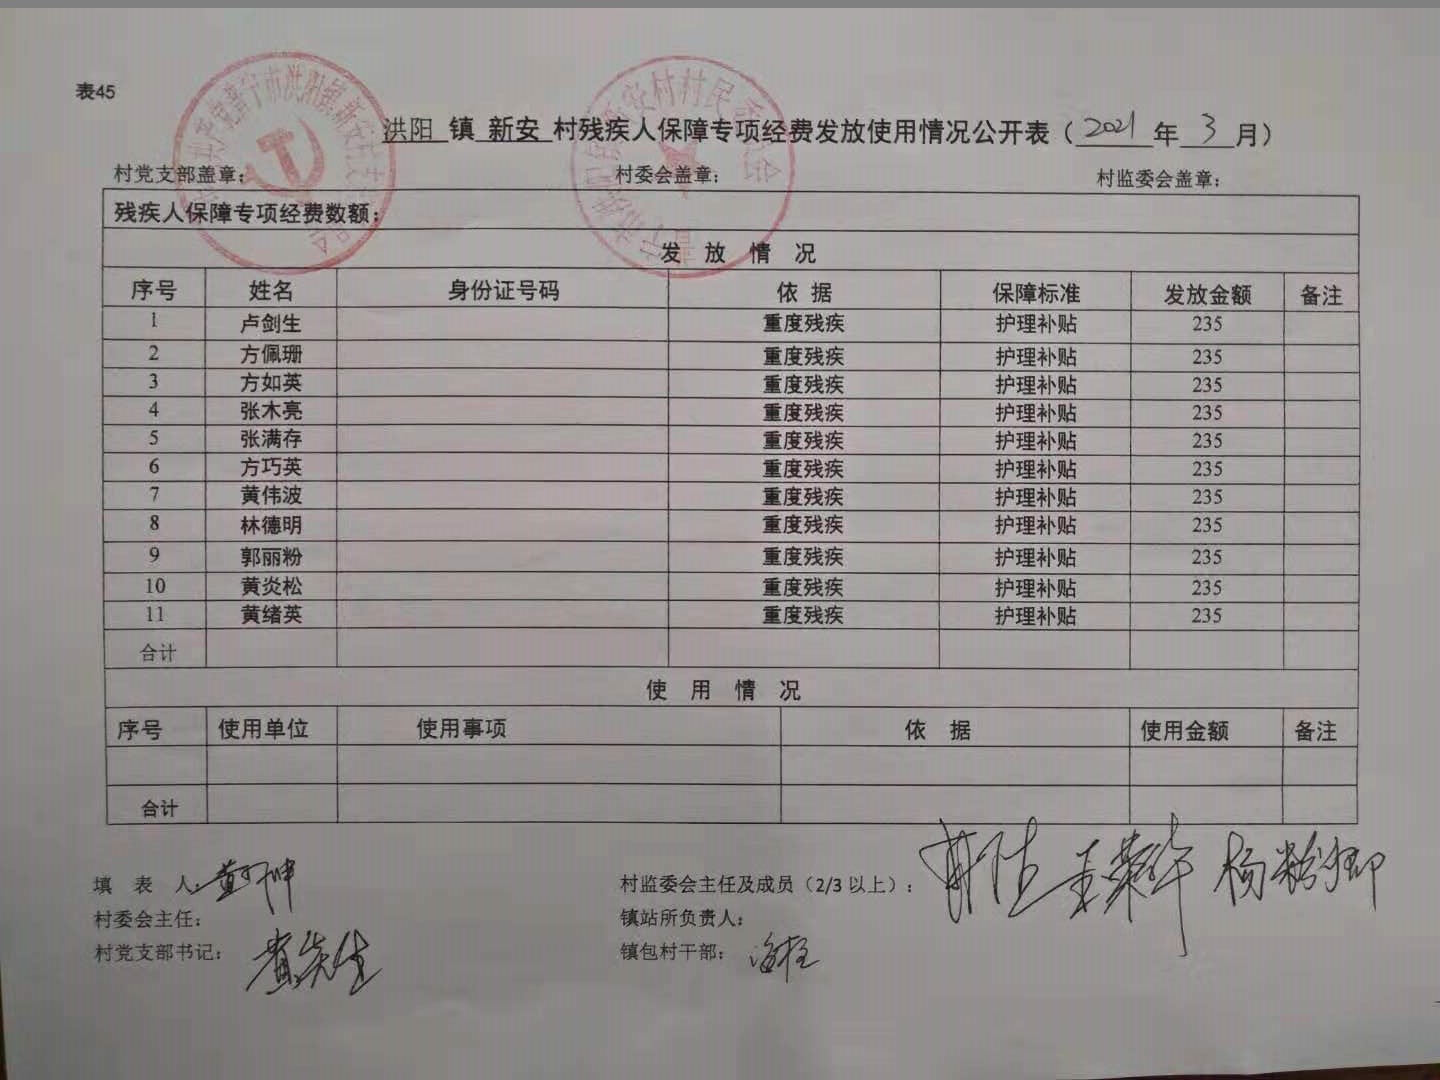 表45
洪阳 镇 新安 村残疾人保障专项经费发放使用情况公开表（2021 年 3 月）
村党支部盖章： 村委会盖章： 村监委会盖章：
残疾人保障专项经费数额：
发 放 情 况
序号 姓名 身份证号码 依 据 保障标准 发放金额 备注
1 卢剑生 重度残疾 护理补贴 235
2 方佩珊 重度残疾 护理补贴 235
3 方如英 重度残疾 护理补贴 235
4 张木亮 重度残疾 护理补贴 235
5 张满存 重度残疾 护理补贴 235
6 方巧英 重度残疾 护理补贴 235
7 黄伟波 重度残疾 护理补贴 235
8 林德明 重度残疾 护理补贴 235
9 郭丽粉 重度残疾 护理补贴 235
10 黄炎松 重度残疾 护理补贴 235
11 黄绪英 重度残疾 护理补贴 235
合计
使 用 情 况
序号 使用单位 使用事项 依 据 使用金额 备注
合计
填 表 人： 村监委会主任及成员（2/3 以上）： 杨粉卿
村委会主任： 镇站所负责人：
村党支部书记： 黄先生 镇包村干部：